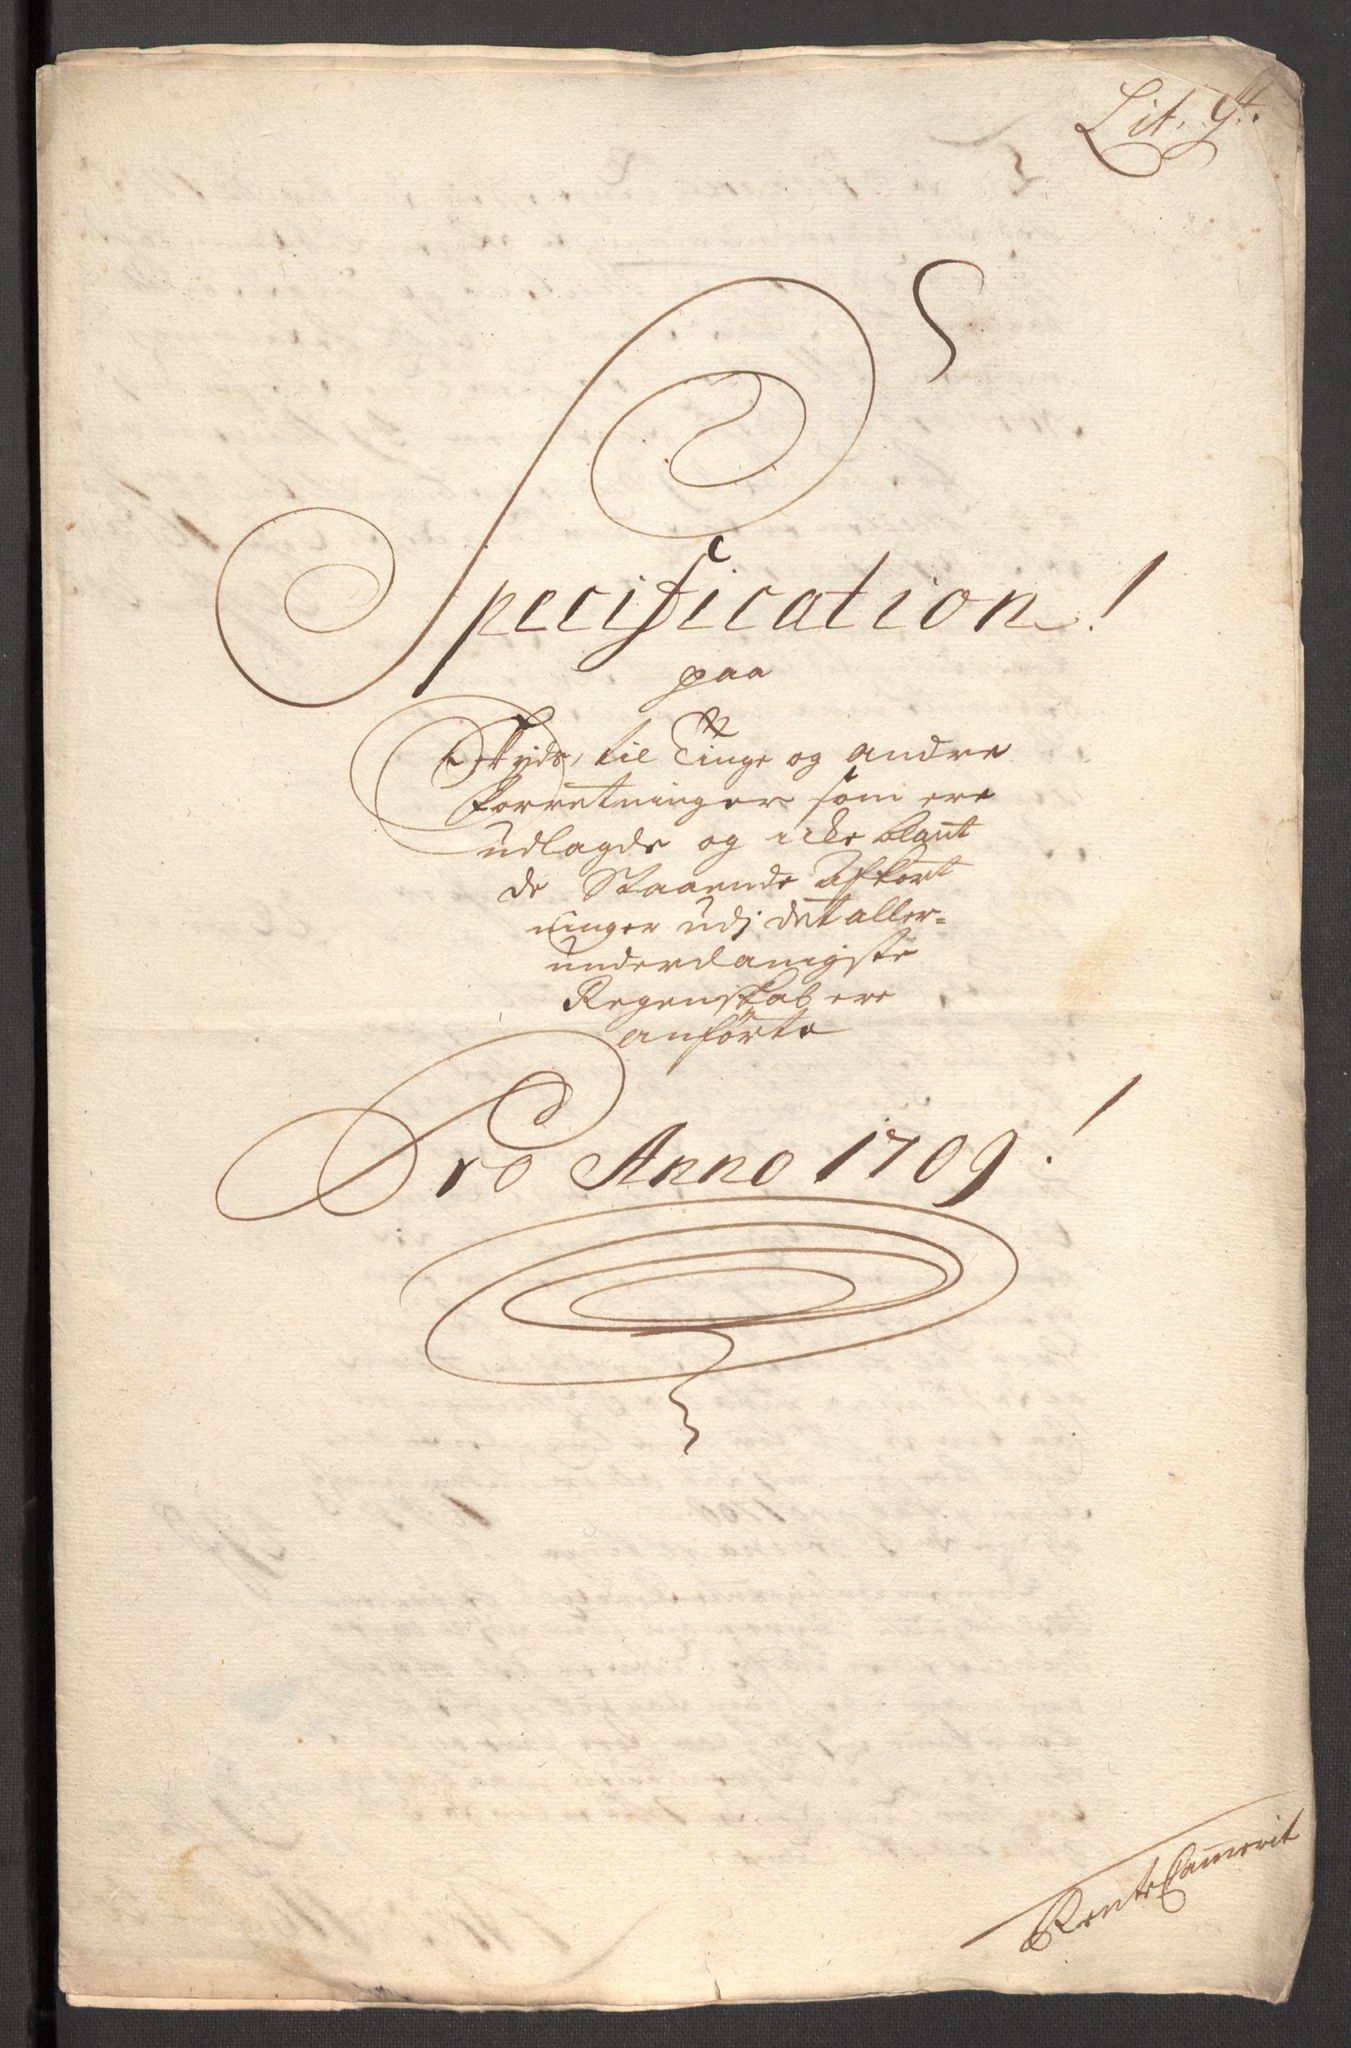 Lit.
Specification!
paa
Skyds, til Tinge og andre
Forretninger som ere
udlagde og icke blant
de Staaende Afkort
ninger udj det aller=
underdanigste
Regenskab ere
anførte
Pro Anno 1709!
Rente Cammerit